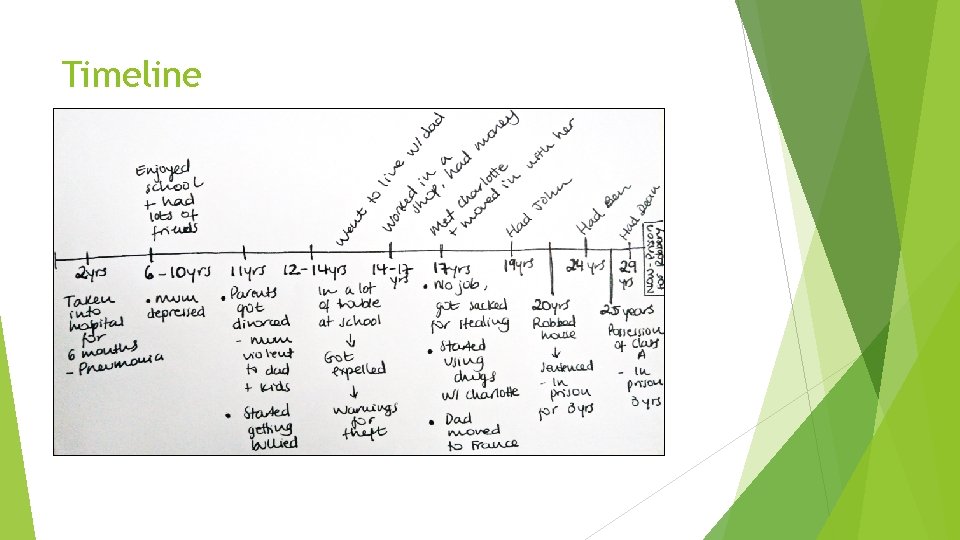 Timeline
Enjoyed
school
+ had
lots of
friends
Went to live w/ dad
Worked in a
shop, had money
Met charlotte
+ moved in with her
Had John
Had Ben
Had Dean
2yrs
Taken
into
hospital
for
6 months
- Pneumonia
6-10yrs
• mum
depressed
11yrs
• Parents
got
divorced
- mum
violent
to dad
+ kids
• Started
getting
bullied
12-14yrs
in a lot
of trouble
at school
↓
Got
expelled
↓
warnings
for
theft
14-17
yrs
17yrs
• No job,
got sacked
for stealing
• Started
using
drugs
w/ charlotte
• Dad
moved
to France
19yrs
20yrs
Robbed
house
↓
sentenced
- in
prison
for 3yrs
24yrs
25years
Possession
of class
A
- in
prison
3yrs
29
yrs
NOW - Prison
for robbery